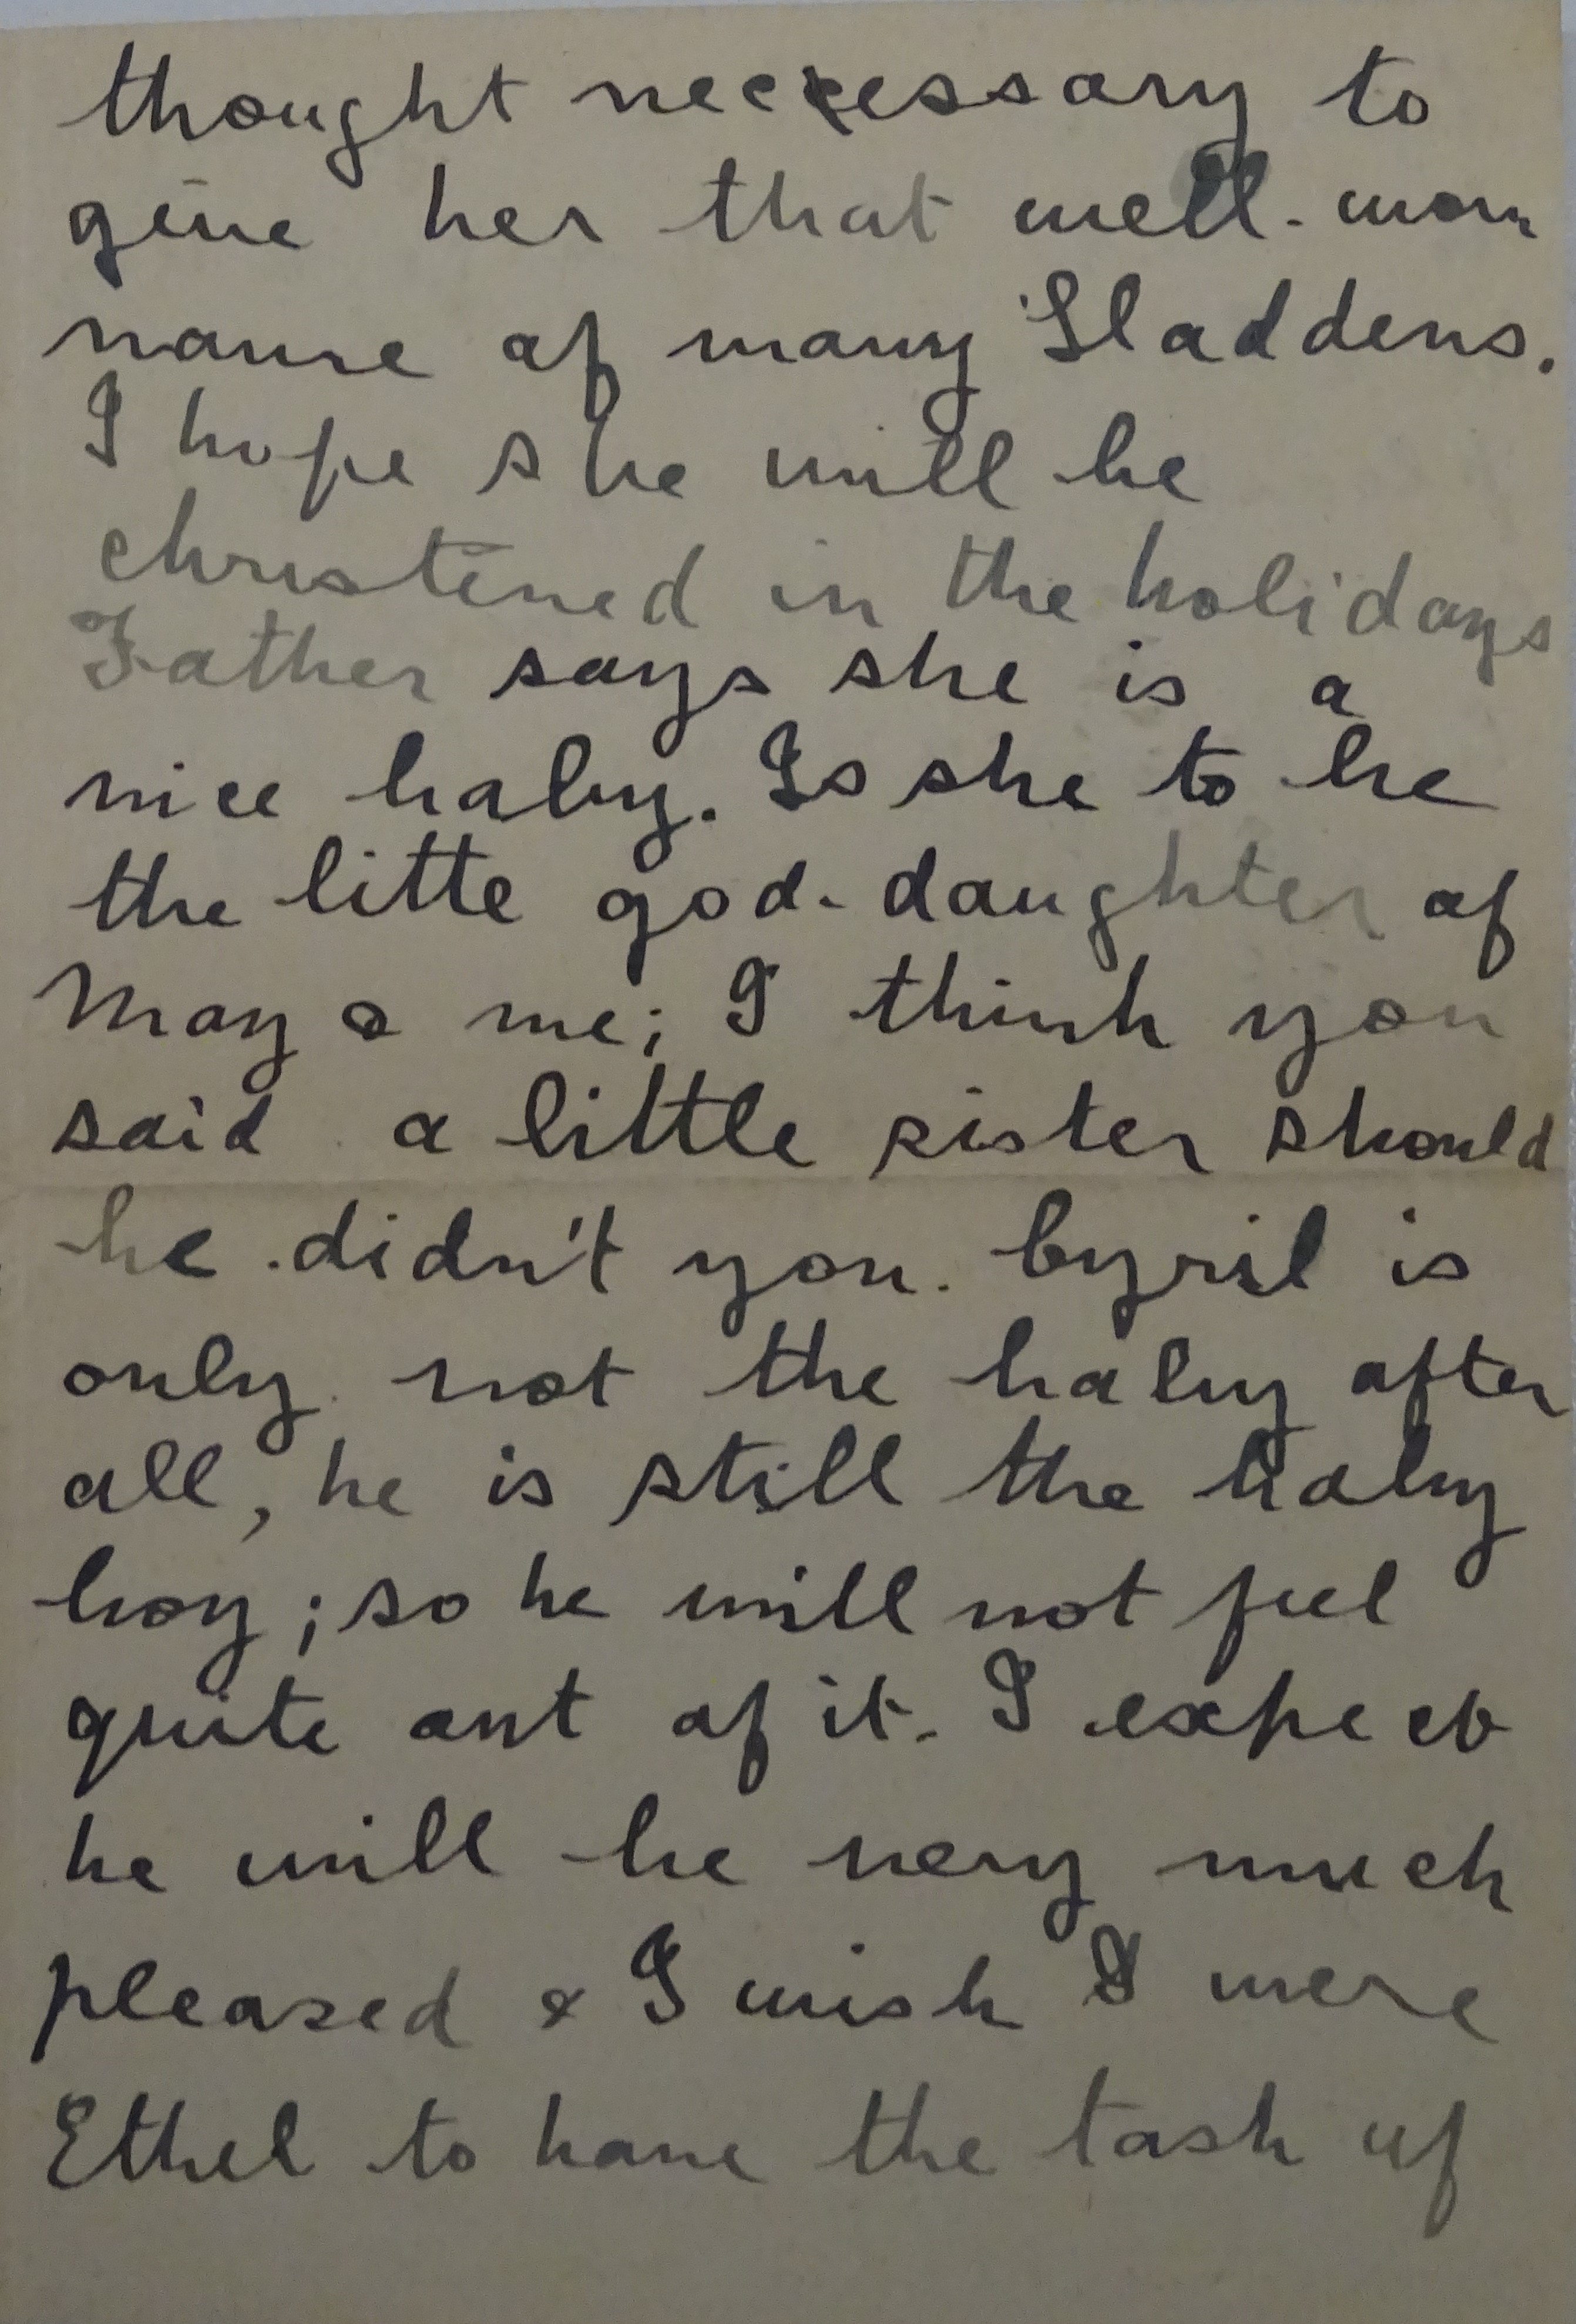 thought neccessary to
give her that well-worn
name of many Sladdens.
I hope she will be
christened in the holidays
Father says she is a
nice baby. Is she to be
the litte god-daughter of
May & me; I think you
said a little sister should
be didn't you. Cyril is
only not the baby after
all, he is still the baby
boy; so he will not feel
quite out of it. I expect
he will be very much
pleased & I wish I were
Ethel to have the task of